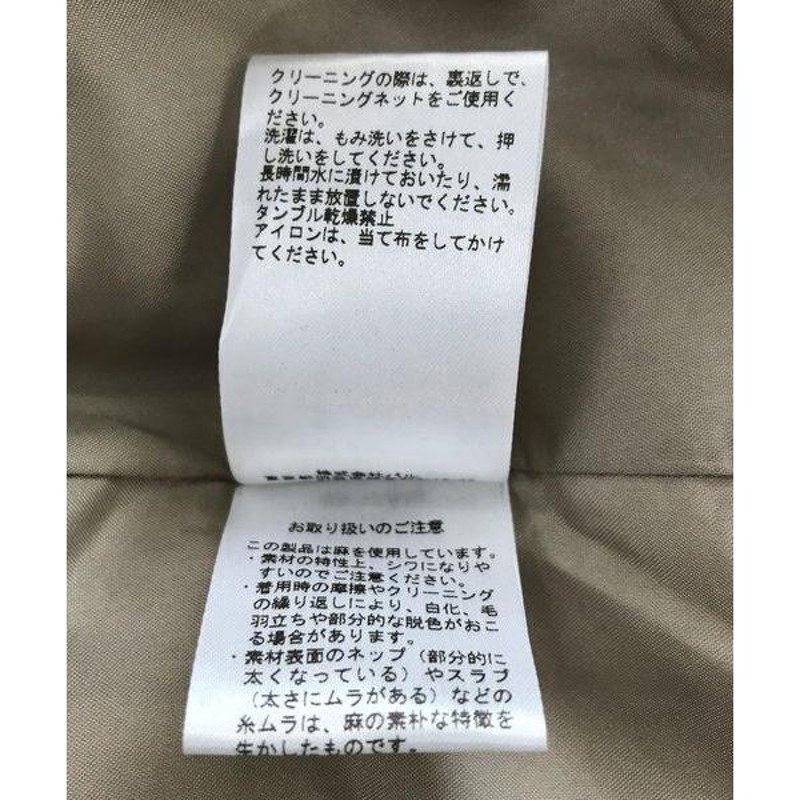 クリーニングの際は、裏返しで、
クリーニングネットをご使用く
ださい。
洗濯は、もみ洗いをさけて、押
し洗いをしてください。
長時間水に漬けておいたり、濡
れたまま放置しないでください。
タンブル乾燥禁止
アイロンは、当て布をしてかけ
てください。
株式会社
お取り扱いのご注意
この製品は麻を使用しています。
・素材の特性上、シワになりや
すいのでご注意ください。
・着用時の摩擦やクリーニング
の繰り返しにより、白化、毛
羽立ちや部分的な脱色がおこ
る場合があります。
・素材表面のネップ（部分的に
太くなっている）やスラブ
（太さにムラがある）などの
糸ムラは、麻の素朴な特徴を
生かしたものです。